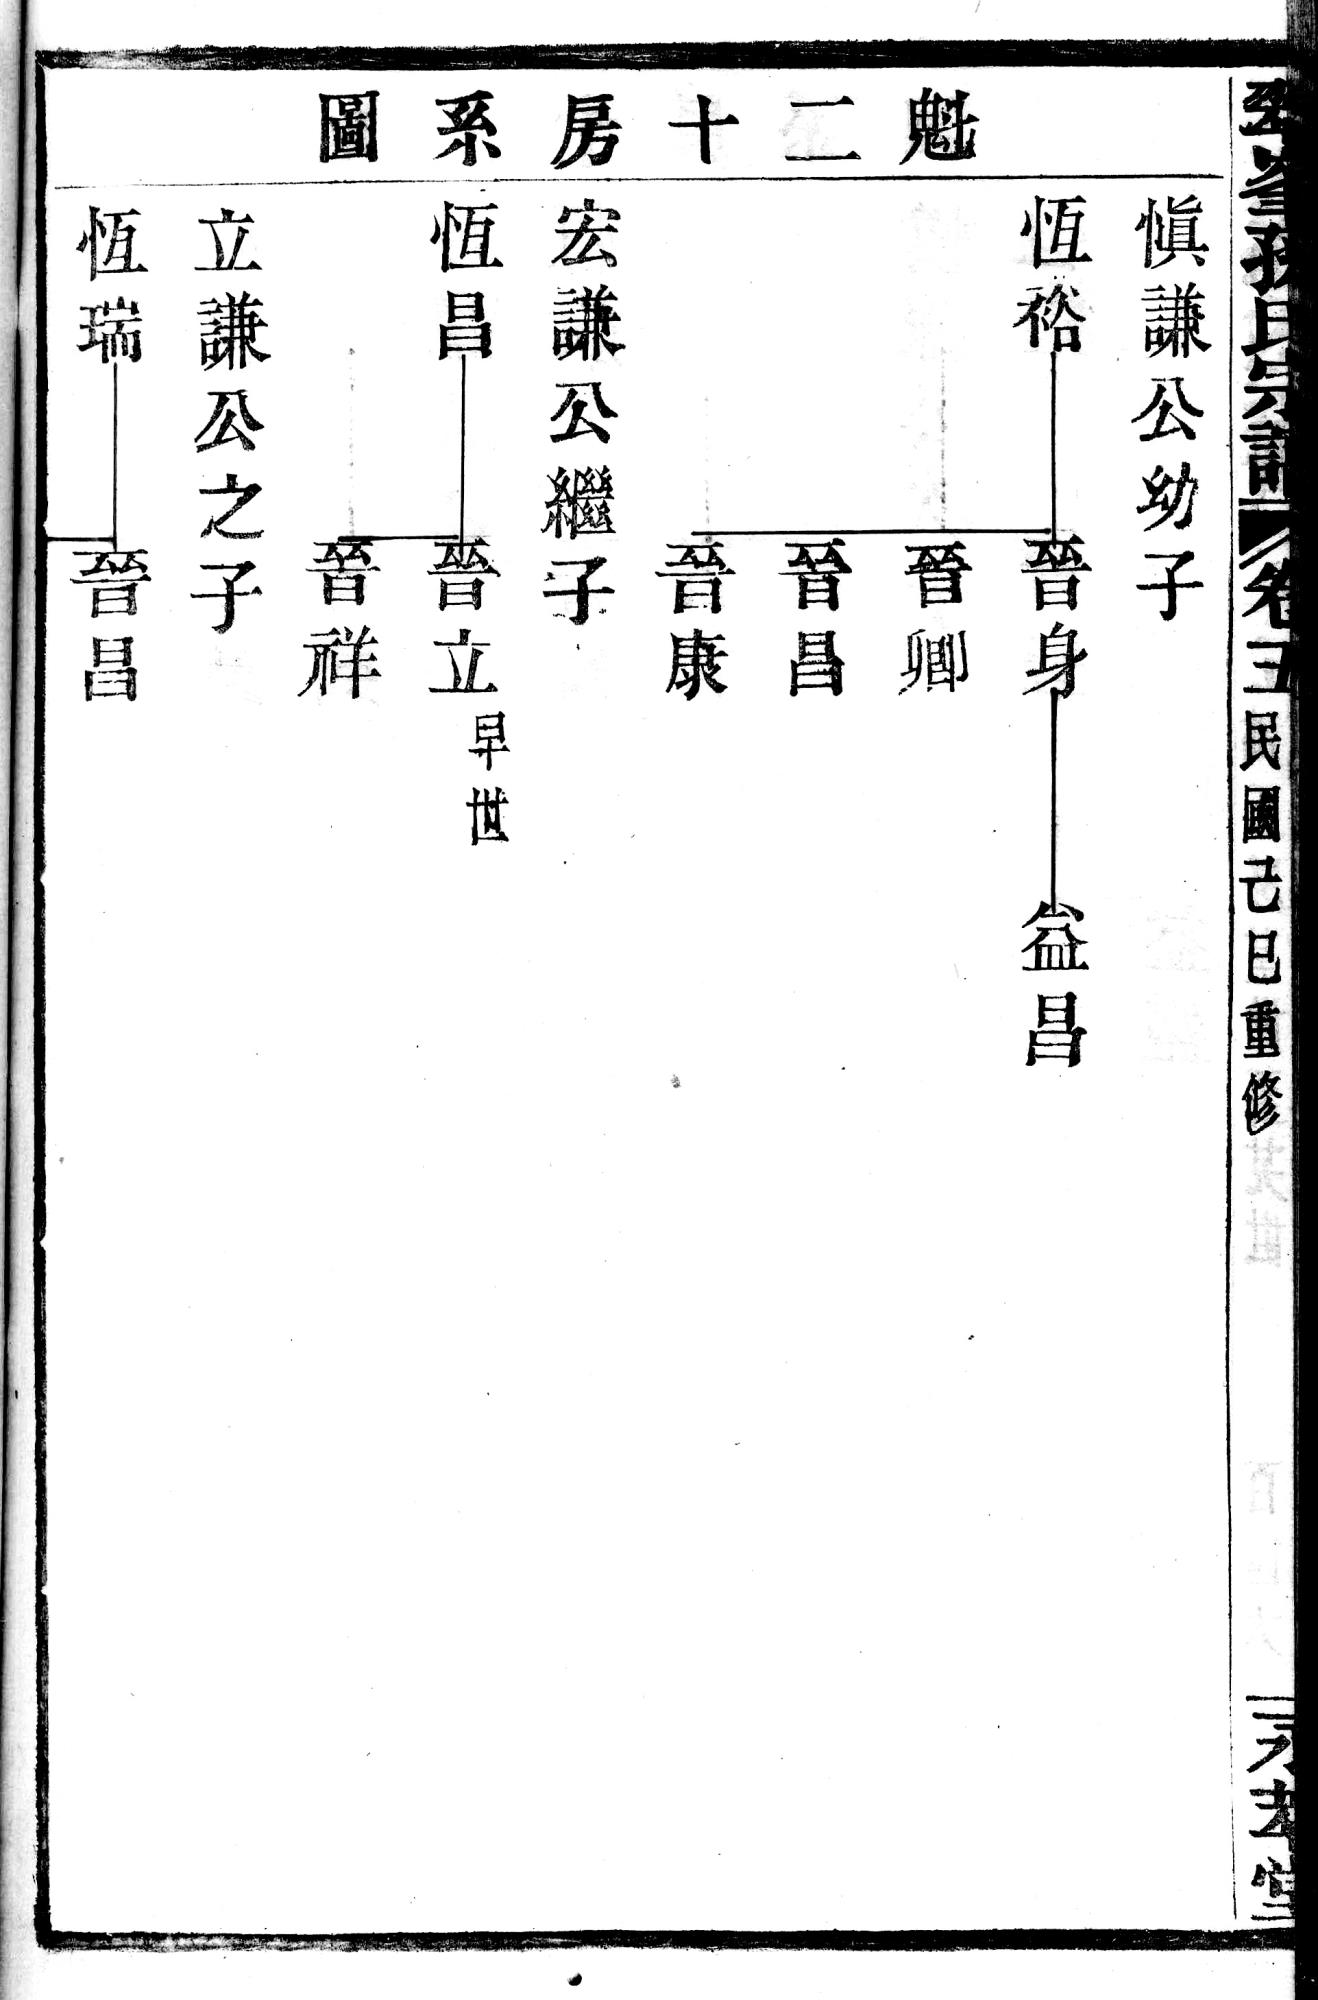 魁二十房系圖
愼謙公幼子
恆裕
晉身
益昌
晉卿
晉昌
晉康
宏謙公繼子
恆昌
晉立
早世
晉祥
立謙公之子
恆瑞
晉昌
孫氏宗譜
卷五
民國己巳重修
堂